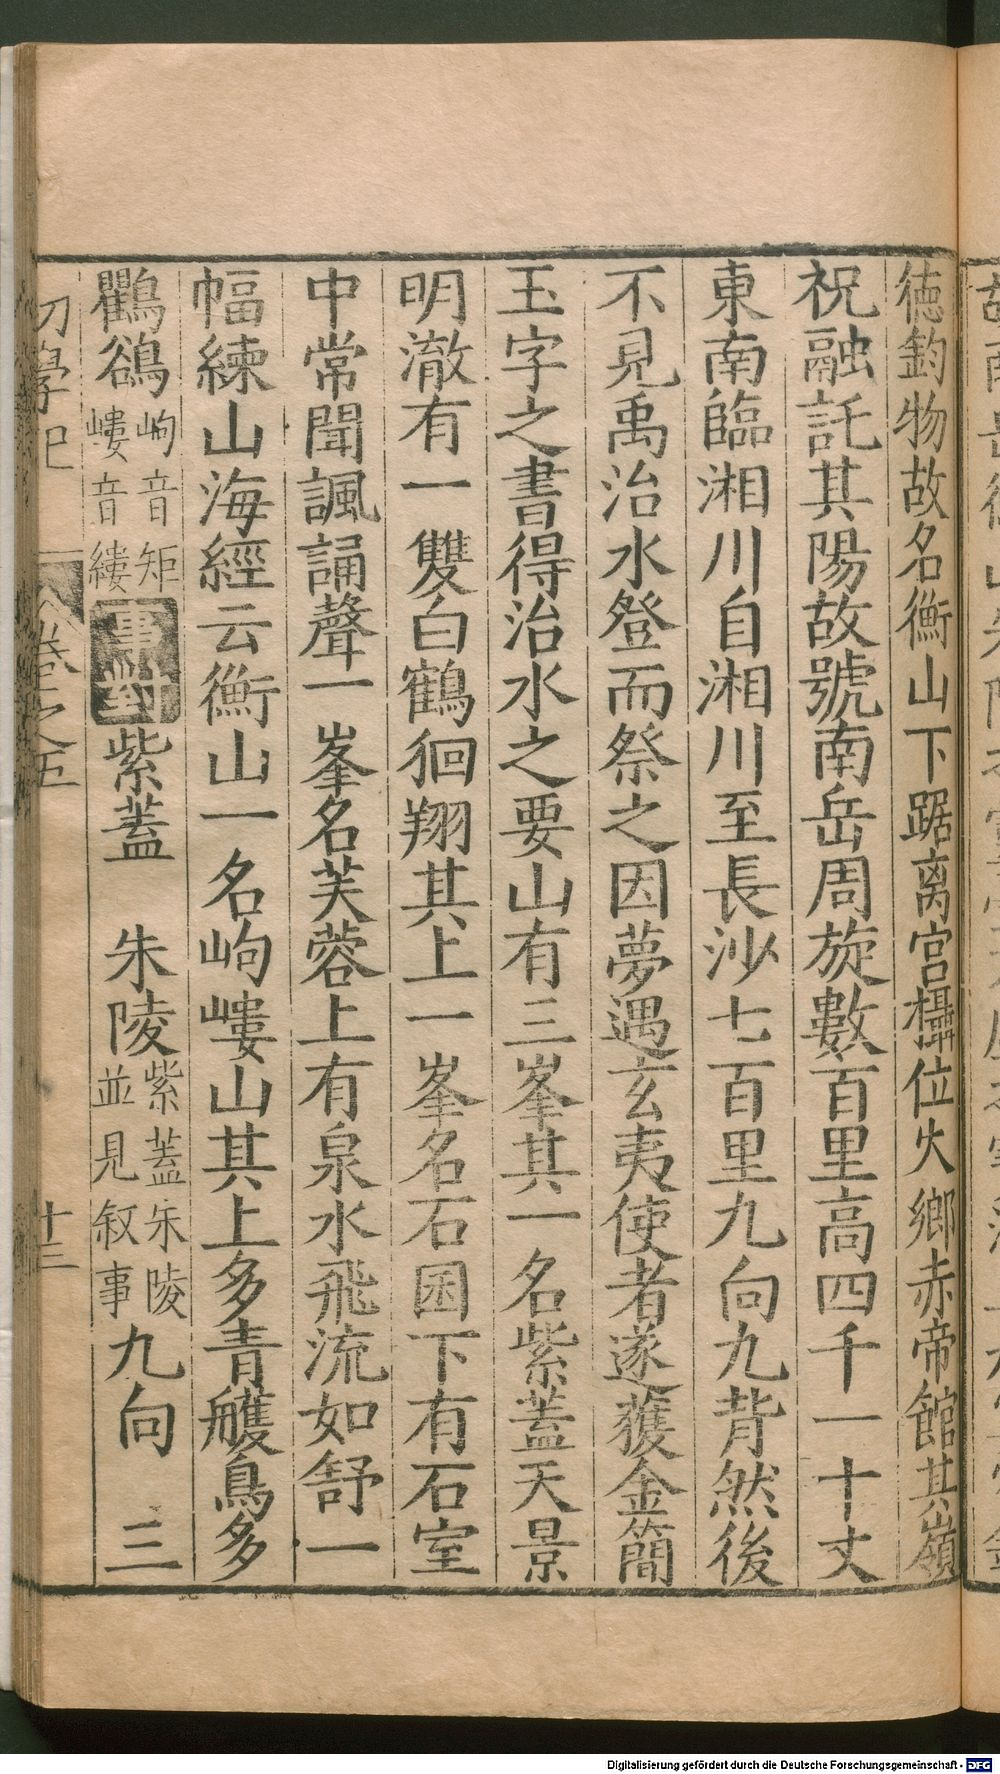 德鈞物故名衡山下踞离宮攝位火鄉赤帝館其嶺
祝融託其陽故號南岳周旋數百里高四千一十丈
東南臨湘川自湘川至長沙七百里九向九背然後
不見禹治水登而祭之因夢遇玄夷使者遂獲金簡
玉字之書得治水之要山有三峯其一名紫蓋天景
明澈有一雙白鶴徊翔其上一峯名石囷下有石室
中常聞諷誦聲一峯名芙蓉上有泉水飛流如舒一
幅練山海經云衡山一名岣嶁山其上多青雘鳥多
鸜鵒岣音矩嶁音縷事對紫蓋 朱陵紫蓋朱陵並見叙事九向 三
初學記 卷之五 十三
Digitalisierung gefördert durch die Deutsche Forschungsgemeinschaft - DFG